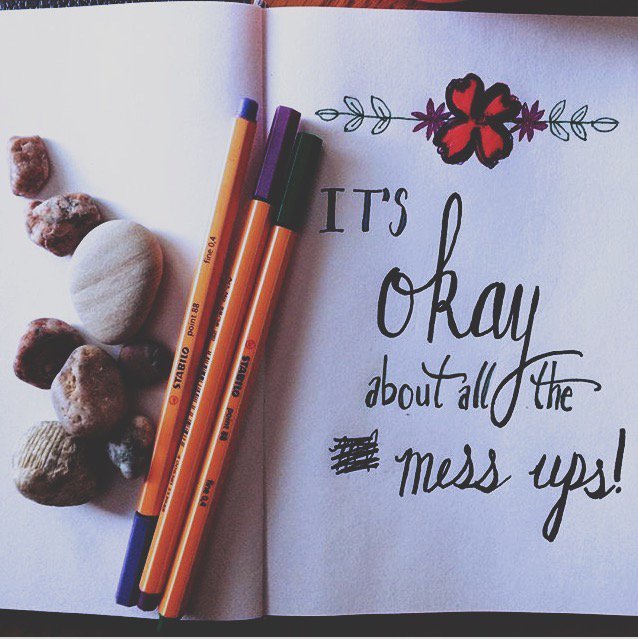 IT'S
okay
about all the
mess ups!
STABILO point 88 fine 0,4
STABILO point 88 fine 0,4